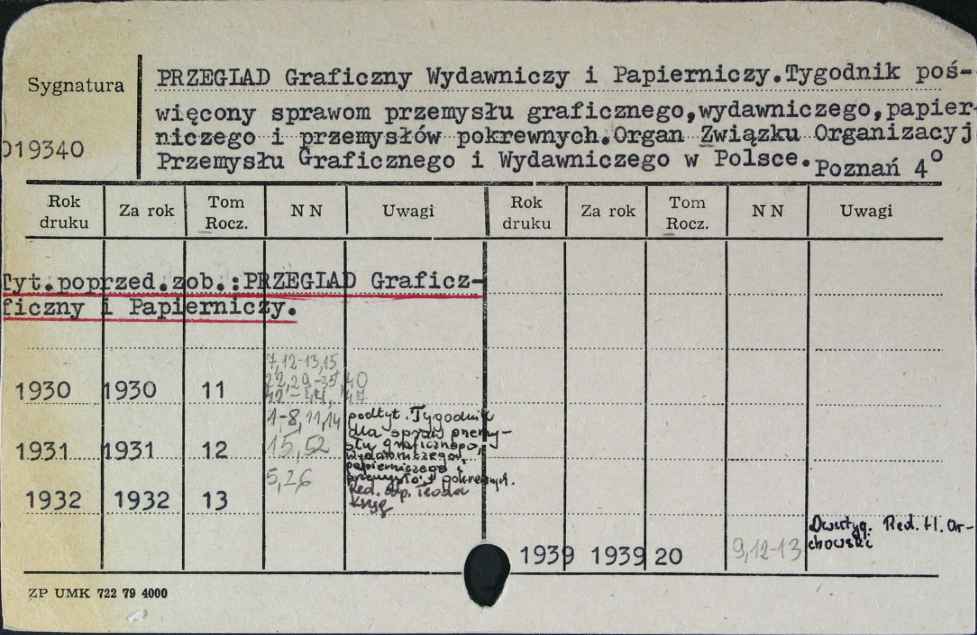 Sygnatura
PRZEGLAD Graficzny Wydawniczy i Papierniczy.Tygodnik poś-
więcony sprawom przemysłu graficznego,wydawniczego,papier-
niczego i przemysłów pokrewnych.Organ Związku Organizacyj
019340 Przemysłu Graficznego i Wydawniczego w Polsce. Poznań 4°
Rok druku Za rok Tom Rocz. N N Uwagi Rok druku Za rok Tom Rocz. N N Uwagi
Tyt.poprzed.zob.:PRZEGLAD Graficz-
ficzny i Papierniczy.
7,12-13,15
22,29-35,40
1930 1930 11 42-44, 47
1-8, 11,14 podtyt. Tygodnik
dla spraw przemy-
1931 1931 12 15,52 słu graficznego,
wydawniczego,
papierniczego i
5,26 przemysłów pokrewnych.
1932 1932 13 Red. odp.
Dwutyg. Red. H. Or-
1939 1939 20 9,12-13 chowski
ZP UMK 722 79 4000